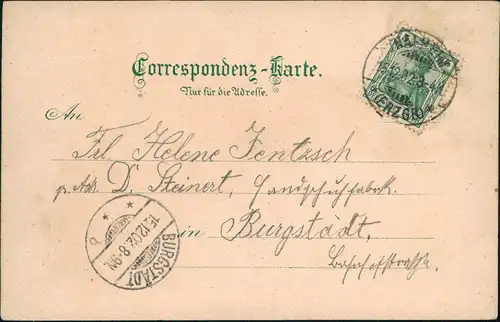 Correspondenz-Karte.
Nur für die Adresse.
An
Frl. Helene Jentzsch
p. Adr. D. Steinert, Handschuhfabrik.
in Burgstädt,
Bahnhofstraße.
BURGSTÄDT
15.12.02. 8-9N.
(ERZGEB)